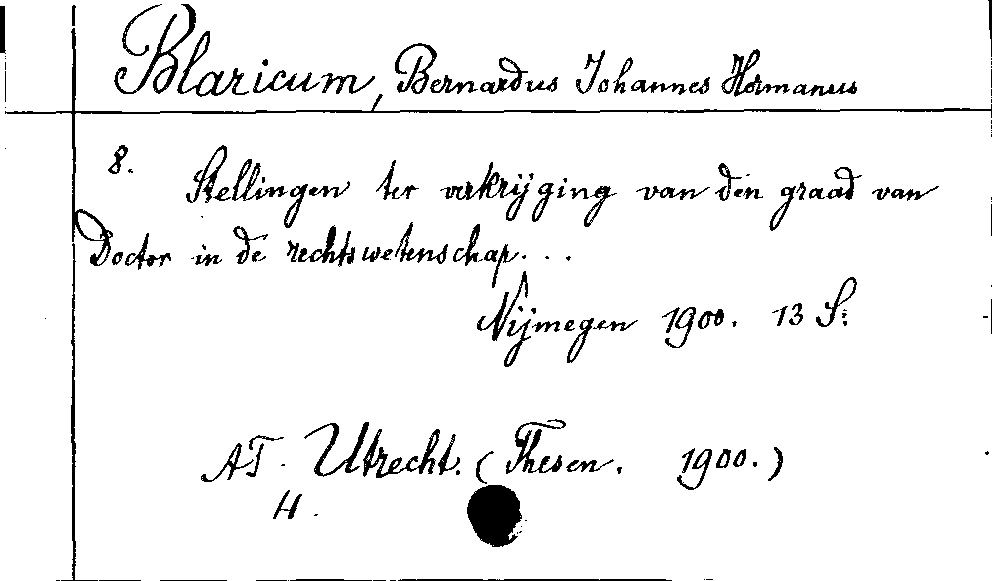 Blaricum, Bernardus Johannes Hermanus
8. Stellingen ter verkrijging van den graad van
Doctor in de rechtswetenschap...
Nijmegen 1900. 13 S.
AT. Utrecht. (Thesen. 1900.)
H.